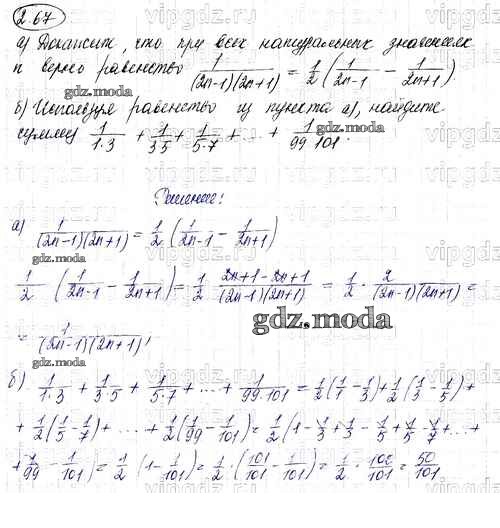 2.67
а) Докажите, что при всех натуральных значениях
n верно равенство 1/((2n-1)(2n+1)) = 1/2 (1/(2n-1) - 1/(2n+1)).
б) Используя равенство из пункта а), найдите
сумму 1/(1·3) + 1/(3·5) + 1/(5·7) + ... + 1/(99·101).
Решение:
а) 1/((2n-1)(2n+1)) = 1/2 (1/(2n-1) - 1/(2n+1))
1/2 (1/(2n-1) - 1/(2n+1)) = 1/2 · (2n+1-2n+1)/((2n-1)(2n+1)) = 1/2 · 2/((2n-1)(2n+1)) =
= 1/((2n-1)(2n+1)),
б) 1/(1·3) + 1/(3·5) + 1/(5·7) + ... + 1/(99·101) = 1/2 (1/1 - 1/3) + 1/2 (1/3 - 1/5) +
+ 1/2 (1/5 - 1/7) + ... + 1/2 (1/99 - 1/101) = 1/2 (1 - 1/3 + 1/3 - 1/5 + 1/5 - 1/7 + ... +
+ 1/99 - 1/101) = 1/2 (1 - 1/101) = 1/2 · (101/101 - 1/101) = 1/2 · 100/101 = 50/101
gdz.moda
vipgdz